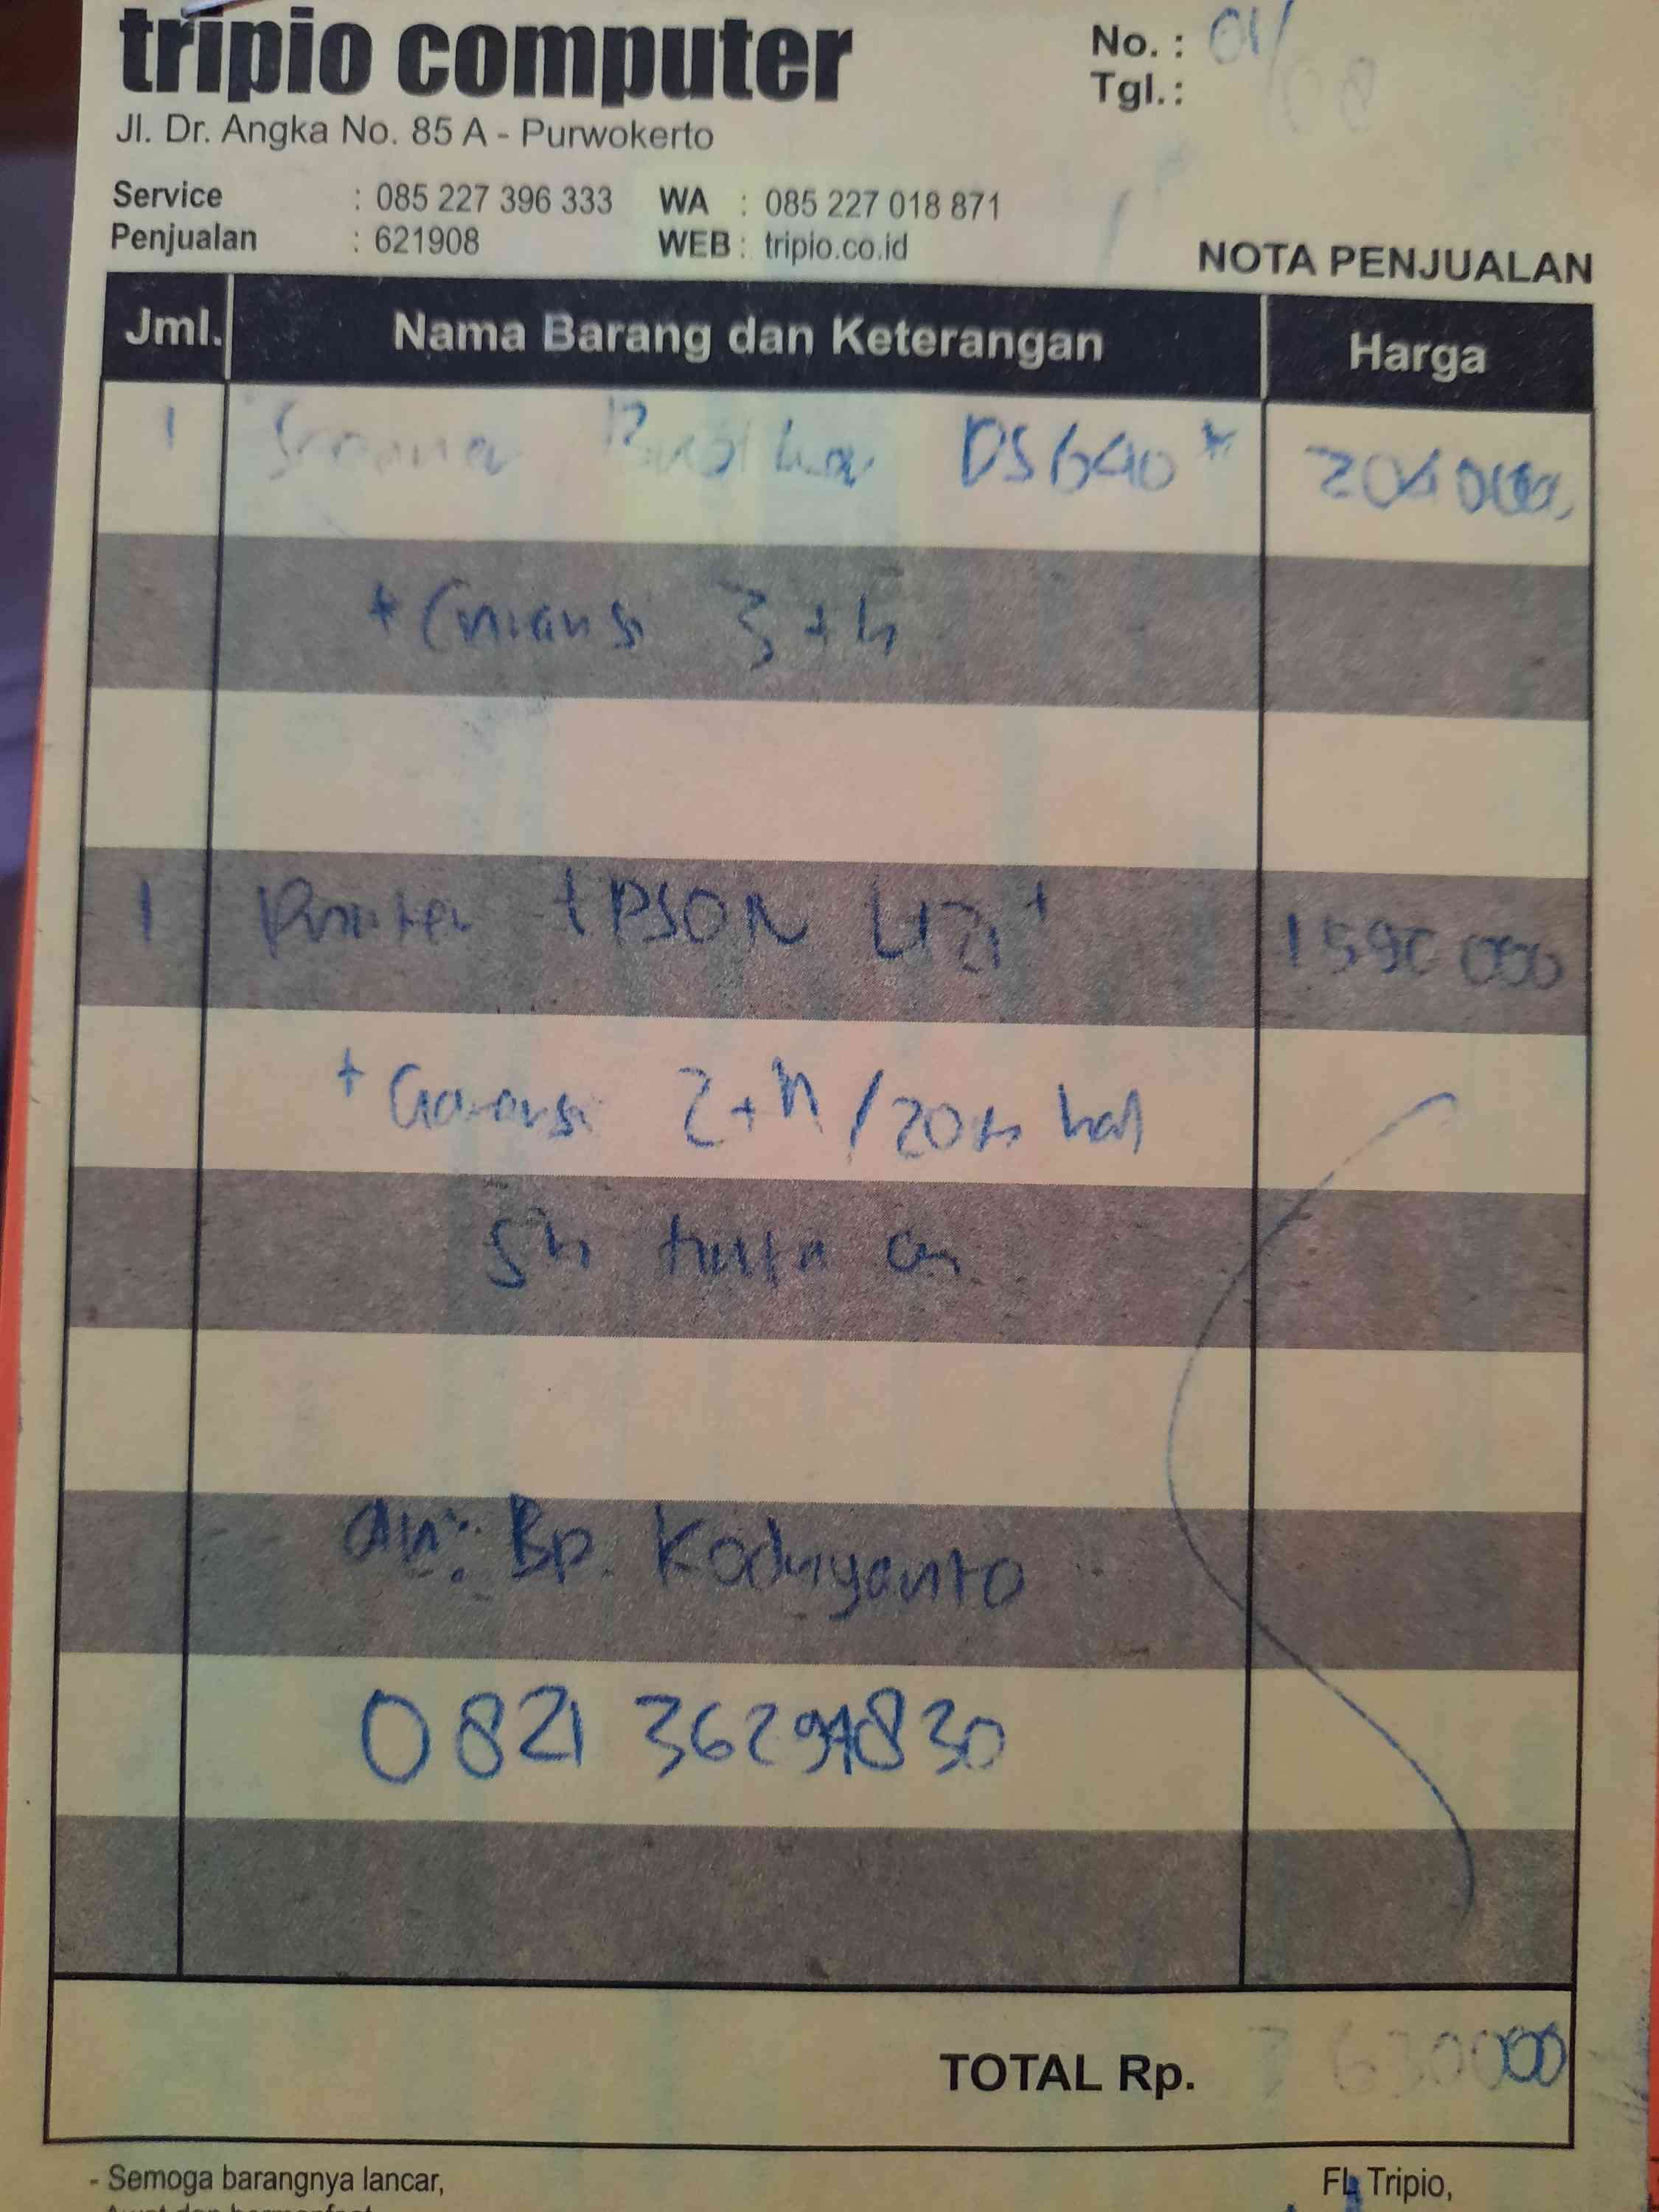 tripio computer
No. : 01/08
Tgl. :
Jl. Dr. Angka No. 85 A - Purwokerto
Service : 085 227 396 333 WA : 085 227 018 871
Penjualan : 621908 WEB : tripio.co.id
NOTA PENJUALAN
Jml. Nama Barang dan Keterangan Harga
1 Scanner Brother DS640 * 2040000
* Garansi 3 th
1 Printer EPSON L121 + 1590 000
+ Garansi 2 th / 20 rb hal
an: Bp. Kodriyanto
0821 36294830
TOTAL Rp. 3630000
- Semoga barangnya lancar,
FL Tripio,